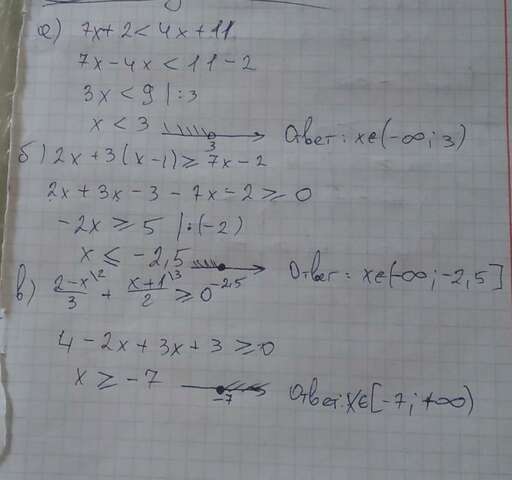 а) 7x+2<4x+11
7x-4x<11-2
3x<9 | :3
x<3 3 Ответ: x∈(-∞; 3)
б) 2x+3(x-1)≥7x-2
2x+3x-3-7x-2≥0
-2x≥5 | :(-2)
x≤-2,5 -2,5 Ответ: x∈(-∞; -2,5]
в) (2-x)/3 \2 + (x+1)/2 \3 ≥0
4-2x+3x+3≥0
x≥-7 -7 Ответ: x∈[-7; +∞)